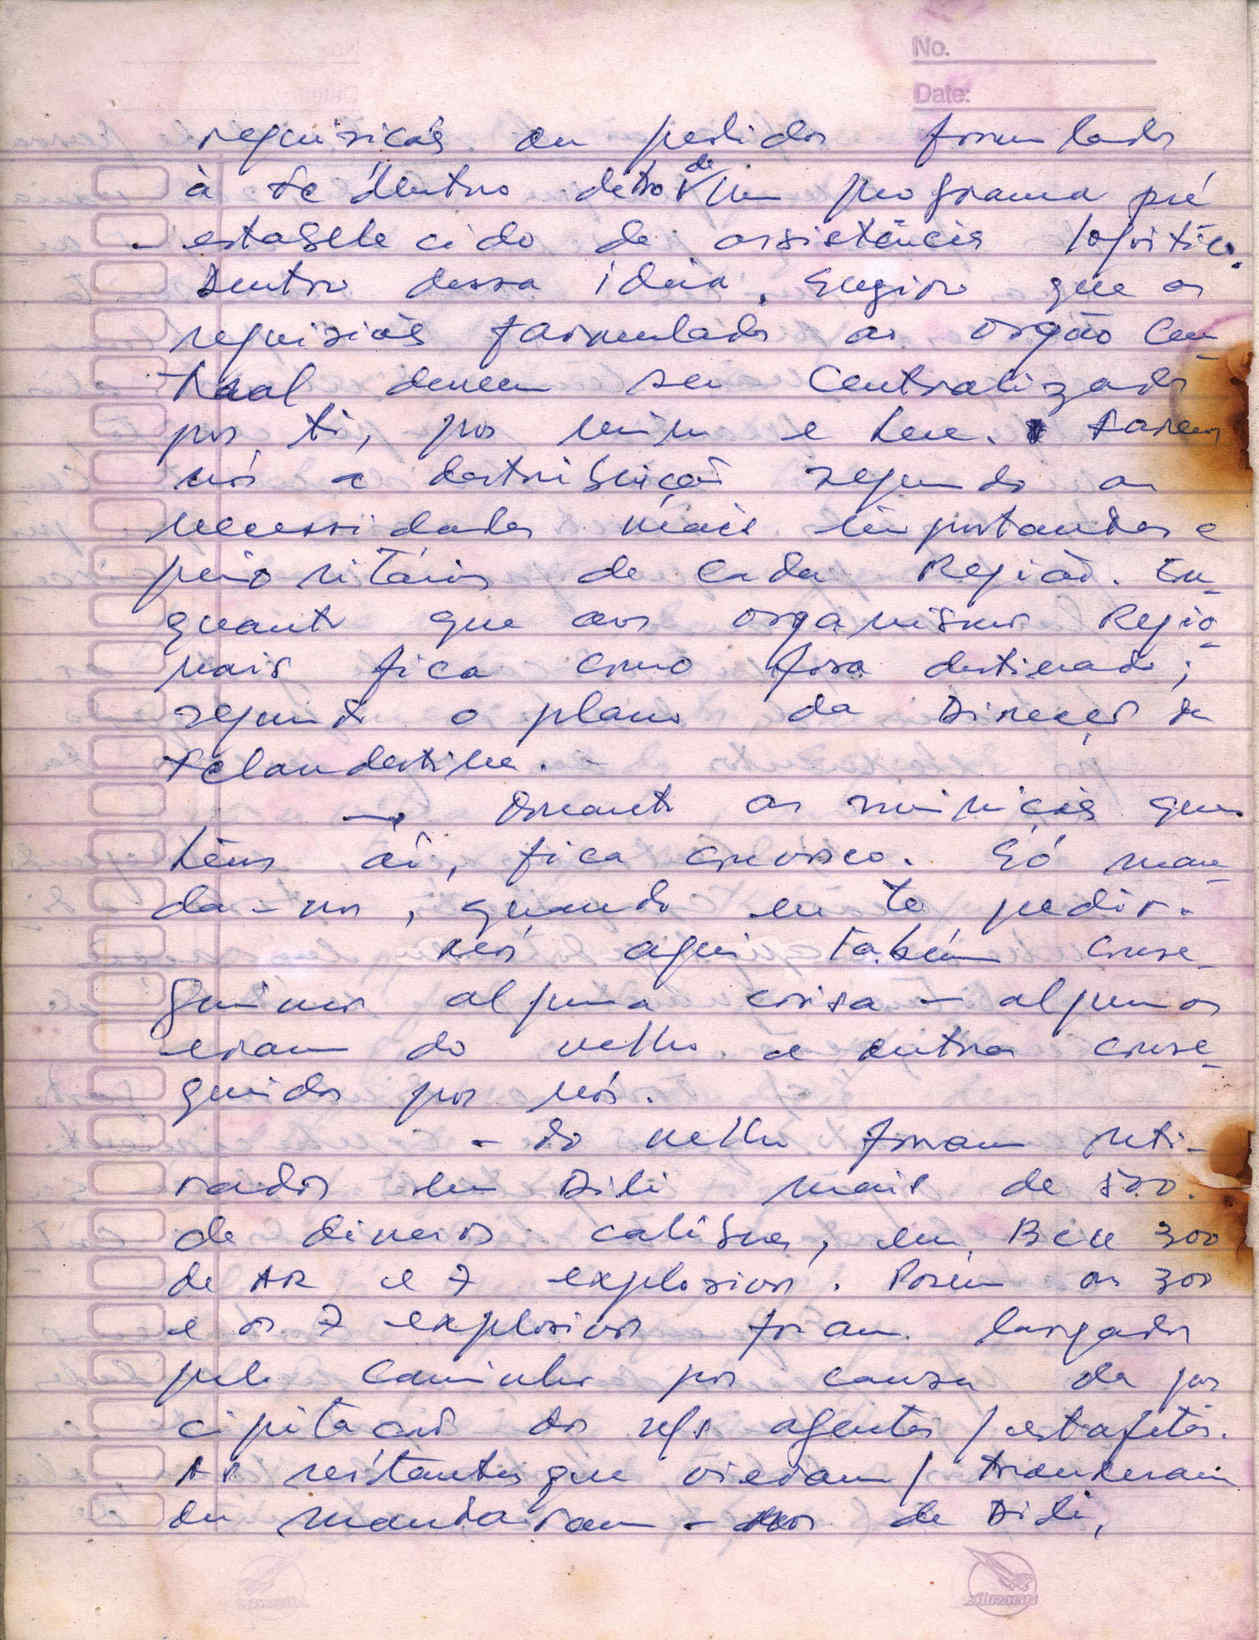 No.
Date:
requisições ou pedidos formulados
à fc dentro detro de um programa pré
estabelecido de assistência logística.
Dentro dessa ideia, sugiro que as
requisiçãs formulado ao orgão Cen-
tral devem ser Centralizado
por ti, por mim e Lere. Faremos
nós a destribuição segundo as
necessidades mais importantes e
prioritárias de cada Região. En-
quanto que aos organismos Regio-
nais fica como fora destinado;
segundo o plano da Direcção da
fclandestina.
Quanto as munições que
têns aí, fica convosco. Só man-
da-nos, quando eu te pedir.
Nós aqui tabém conse-
guimos alguma coisa - algumas
eram do velho e outras conse-
guidos por nós.
- Do velho foram reti-
rados em Dili mais de 500.
de diversos calibres, em, Bcu 300
de AR e 7 explosivos. Porém os 300
e os 7 explosivos foram largados
pelo caminho por causa da pre
cipitação dos agentes / estafetas.
As restantes que vieram / trouxeram
ou mandaram-nos de Dili,